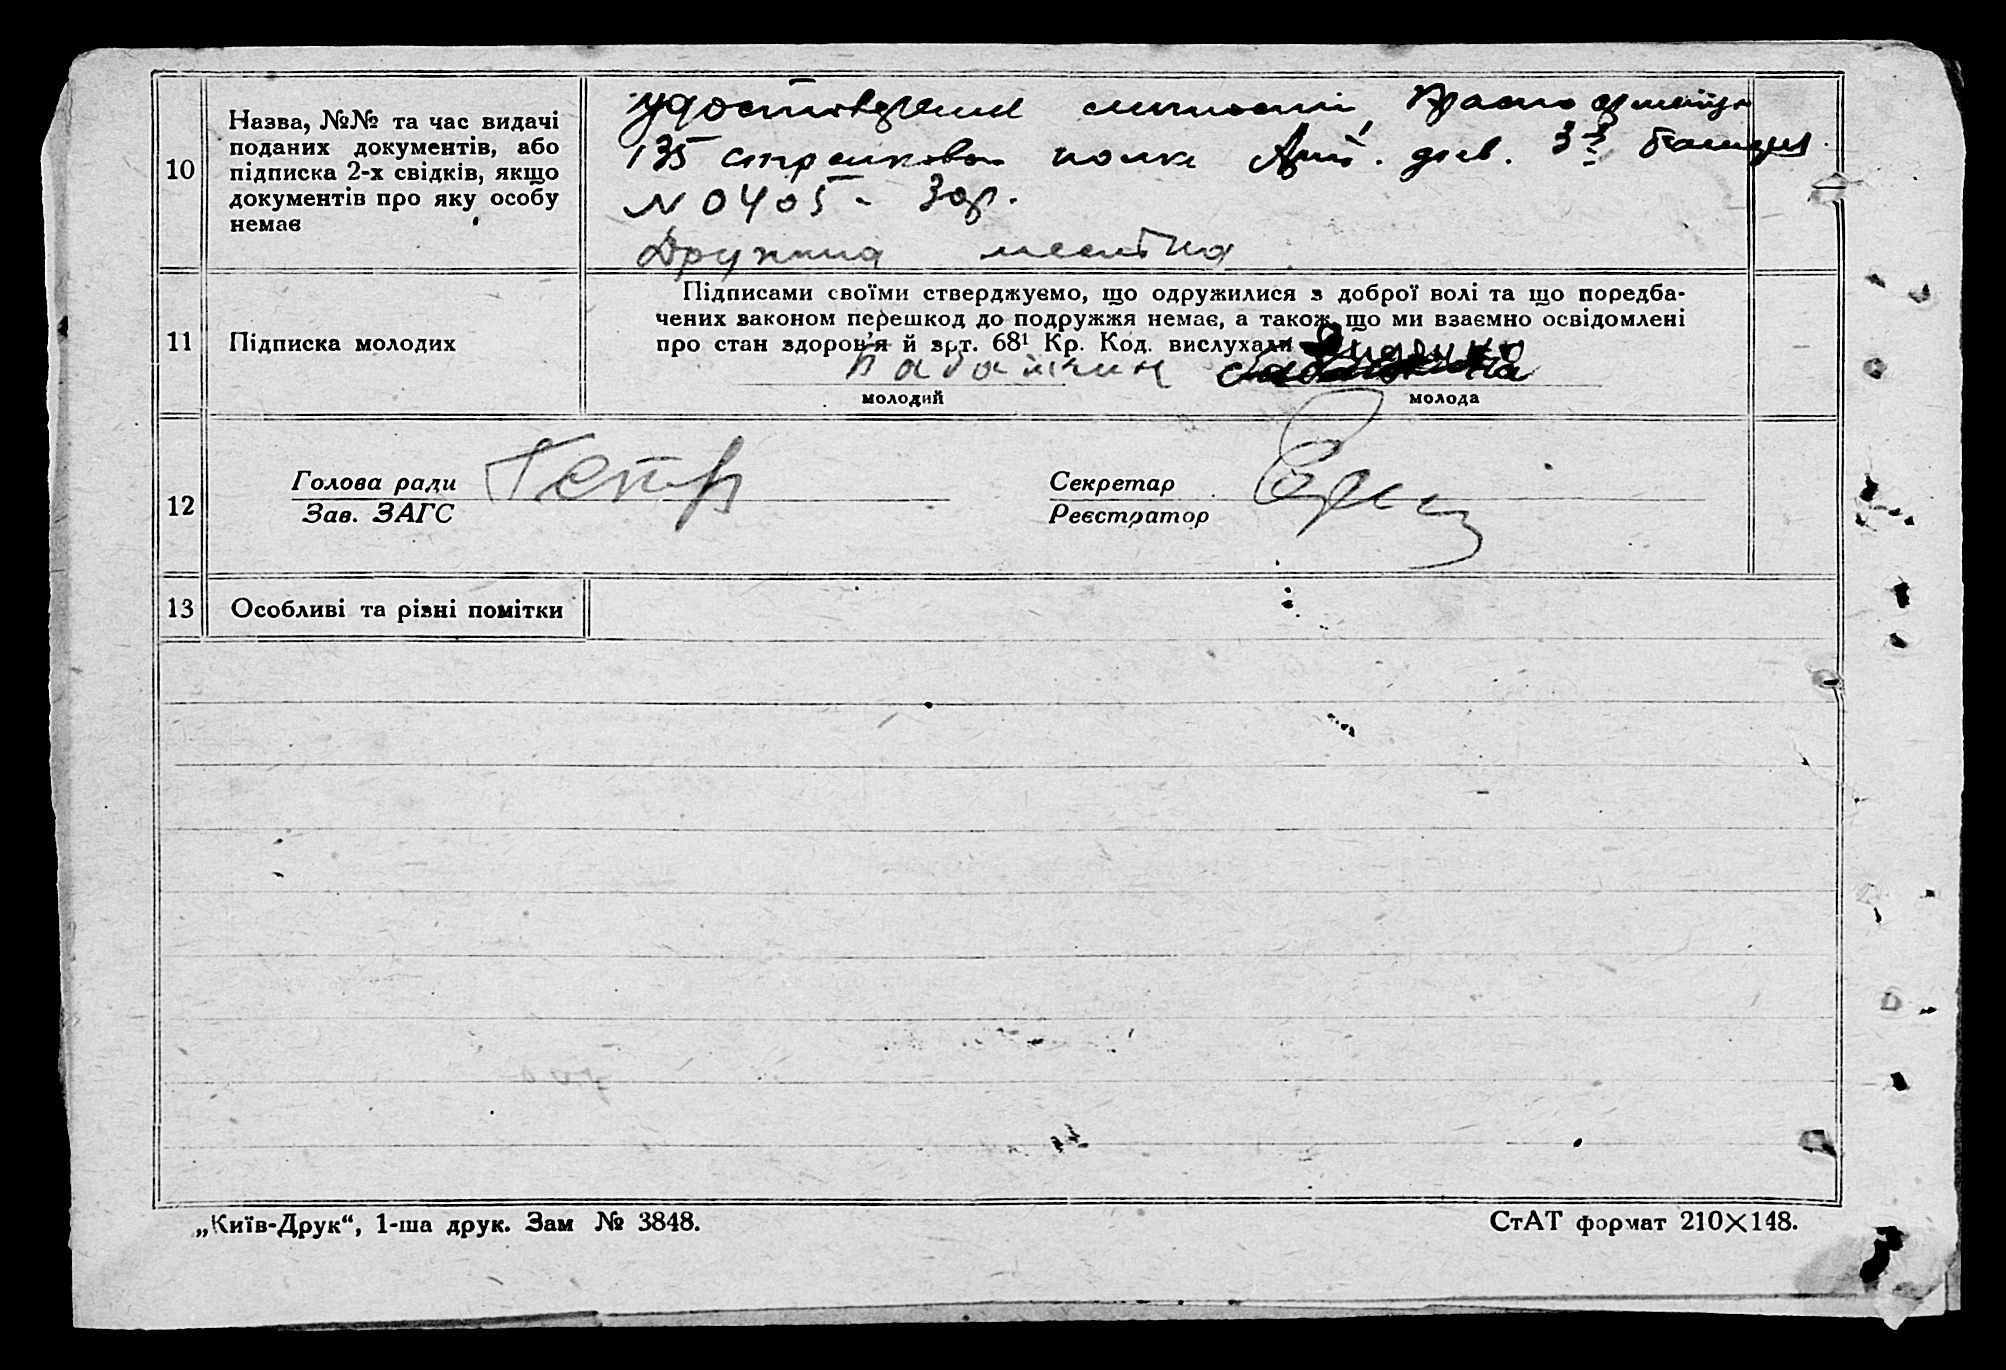 10
Назва, №№ та час видачі
поданих документів, або
підписка 2-х свідків, якщо
документів про яку особу
немає
удостоверение личности, Красноармейца
135 стрелкового полка Арт. див. 3й
N 0405 -
Дружина местна
11
Підписка молодих
Підписами своїми стверджуємо, що одружилися з доброї волі та що поредба-
чених законом перешкод до подружжя немає, а також, що ми взаємно освідомлені
про стан здоров'я й арт. 68¹ Кр. Код. вислухали
молодий
молода
12
Голова ради
Зав. ЗАГС
Секретар
Реєстратор
13
Особливі та різні помітки
„Київ-Друк“, 1-ша друк. Зам № 3848.
СтАТ формат 210×148.